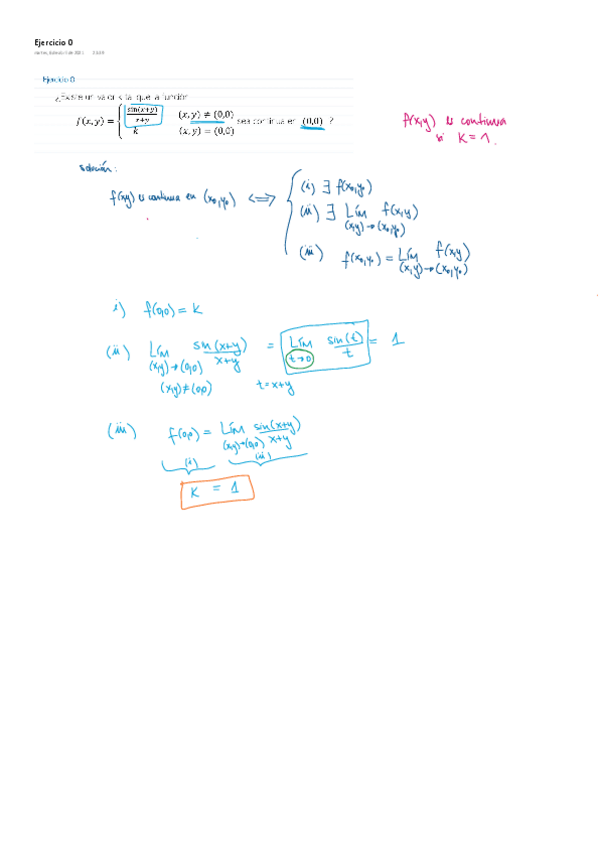 Ejercicio 0
Ejercicio 0
¿Existe un valor k tal que la función
f(x, y) = { sin(x+y)/(x+y) (x, y) ≠ (0,0)
k (x, y) = (0,0) sea continua en (0,0) ?
f(x,y) es continua
si K = 1.
solución:
f(x,y) es continua en (x₀,y₀) <=> { (i) ∃ f(x₀,y₀)
(ii) ∃ Lím f(x,y)
(x,y)→(x₀,y₀)
(iii) f(x₀,y₀) = Lím f(x,y)
(x,y)→(x₀,y₀)
i) f(0,0) = K
(ii) Lím sin(x+y)/x+y = Lím sin(t)/t = 1
(x,y)→(0,0) t→0
(x,y)≠(0,0) t=x+y
(iii) f(0,0) = Lím sin(x+y)/x+y
(x,y)→(0,0)
(i) (ii)
K = 1